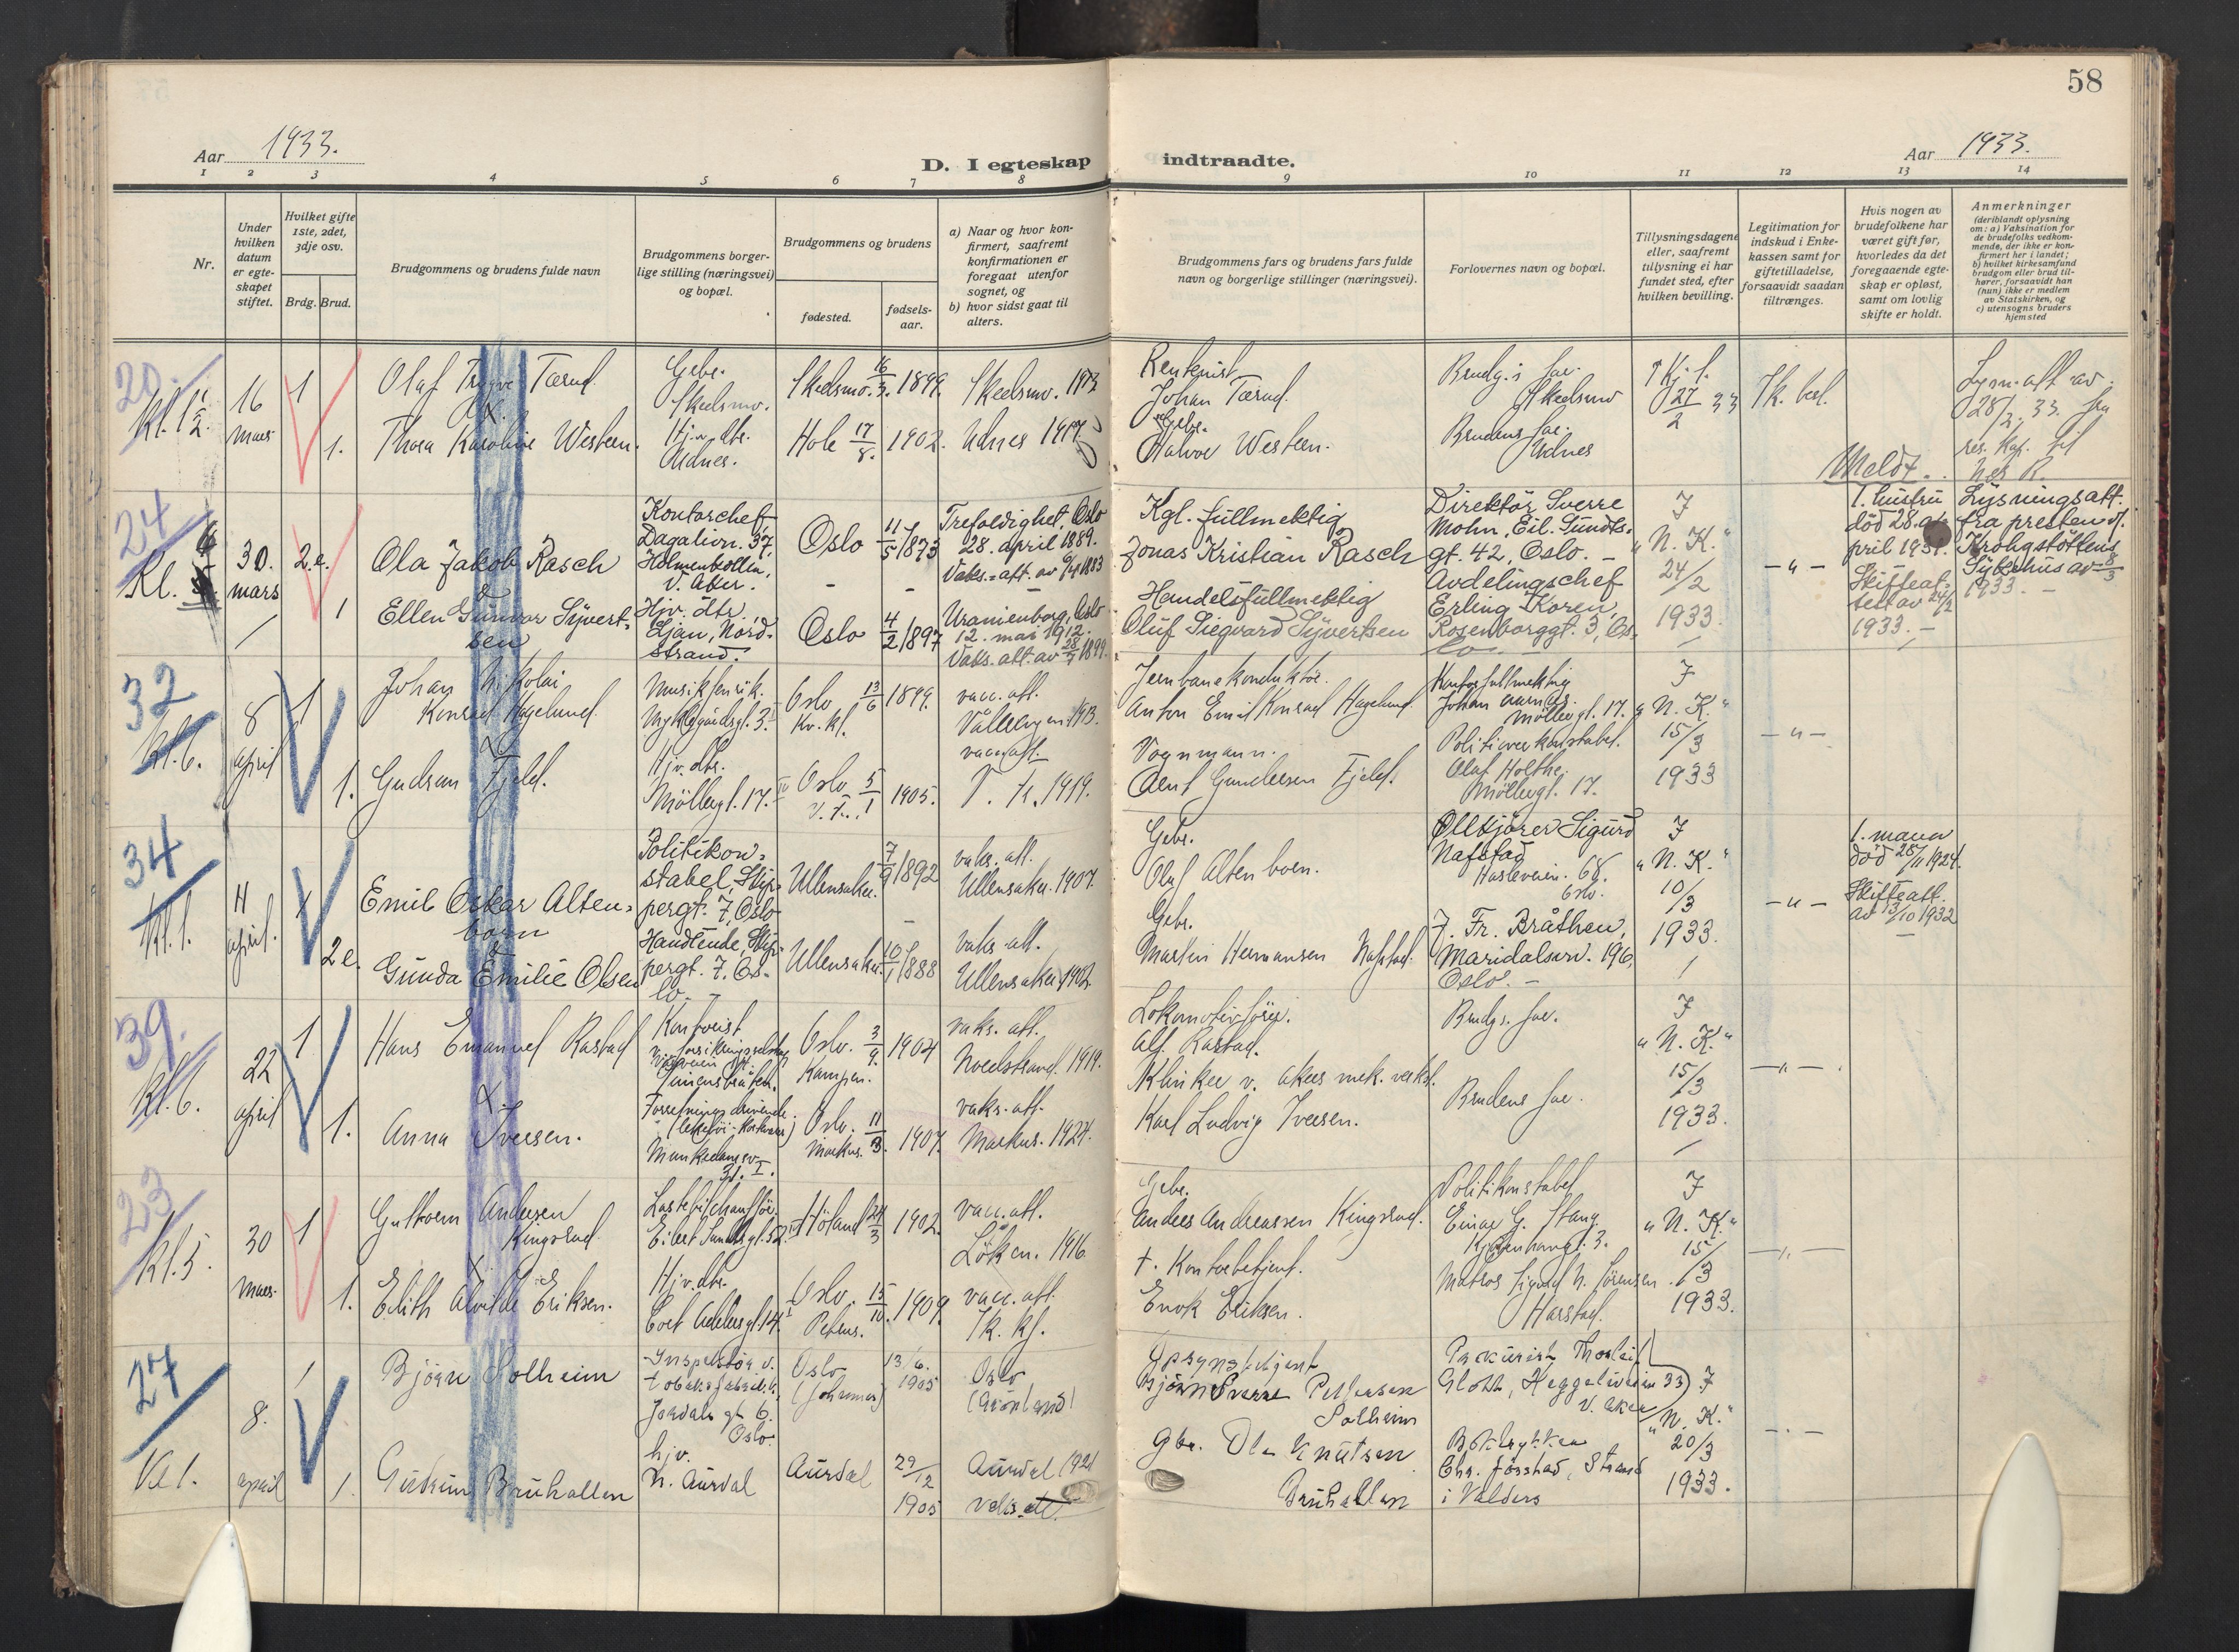 58
Aar 1933.
D. I egteskap indtraadte.
Aar 1933.
1 2 3 4 5 6 7 8 9 10 11 12 13 14
Nr.
Under
hvilken
datum
er egte-
skapet
stiftet.
Hvilket gifte
1ste, 2det,
3dje osv.
Brdg. Brud.
Brudgommens og brudens fulde navn
Brudgommens borger-
lige stilling (næringsvei)
og bopæl.
Brudgommens og brudens
fødested.
fødsels-
aar.
a) Naar og hvor kon-
firmert, saafremt
konfirmationen er
foregaat utenfor
sognet, og
b) hvor sidst gaat til
alters.
Brudgommens fars og brudens fars fulde
navn og borgerlige stillinger (næringsvei).
Forlovernes navn og bopæl.
Tillysningsdagene
eller, saafremt
tillysning ei har
fundet sted, efter
hvilken bevilling.
Legitimation for
indskud i Enke-
kassen samt for
giftetilladelse,
forsaavidt saadan
tiltrænges.
Hvis nogen av
brudefolkene har
været gift før,
hvorledes da det
foregaaende egte-
skap er opløst,
samt om lovlig
skifte er holdt.
Anmerkninger
(deriblandt oplysning
om: a) Vaksination for
de brudefolks vedkom-
mende, der ikke er kon-
firmert her i landet;
b) hvilket kirkesamfund
brudgom eller brud til-
hører, forsaavidt han
(hun) ikke er medlem
av Statskirken, og
c) utensogns bruders
hjemsted
20.
Kl. 1 1/2.
16
mars
1
1.
Olaf Trygve Tærud.
Thora Karoline Western.
Gbr.
Skedsmo.
Hj.v. dtr.
Udnes.
Skedsmo. 16/3. 1899.
Hole 17/8. 1902.
Skedsmo. 1913
Udnes 1917.
Rentenist
Johan Tærud.
Gbr.
Halvor Western.
Brudg.s far.
Skedsmo
Brudens far.
Udnes
27/2 33
Lysn. att. av
28/2. 33. fra
res. kap. til
Nes R.
Meldt.
24
Kl.
30.
mars
2.e.
1
Ola Jakob Rasch
&
Ellen Gunvor Syvert-
sen
Kontorchef,
Dagalivn. 37,
Holmenkollen,
V. Aker.
Hjv. dtr,
Ljan, Nord-
strand.
Oslo 11/5 1873
Oslo 4/2 1897
Trefoldighet, Oslo
28. april 1889.
Vaks.-att. av 6/4 1883
Uranienborg, Oslo
12. mai 1912.
Vaks. att. av 28/7 1899.
Kgl. fullmektig
Jonas Kristian Rasch
Handelsfullmektig
Oluf Siegvard Syvertsen
Direktør Sverre
Mohn, Eil. Sundts-
gt. 42, Oslo. -
Avdelingschef
Erling Koren,
Rosenborggt. 3, Os-
lo. -
I
"N. K."
24/2
1933.
- " -
1. hustru
død 28. a-
pril 1931.
Skifteat-
test av 24/2
1933. -
Lysningsatt.
fra presten v.
Krohgstøttens
Sykehus av 8/3
1933. -
32
Kl. 6.
8
april
1
1.
Johan Nikolai
Konrad Hagelund.
Gudrun Fjeld.
Musikfenrik.
Nyklegårdsgt. 3.
Hjv. dtr.
Møllergt. 17.
Oslo 13/6 1899.
Kv. kl.
Oslo 5/1 1905.
vacc. att.
Vålerengen 1913.
vacc. att.
1919.
Jernbanekonduktør.
Anton Emil Konrad Hagelund.
Vognmann.
Arnt Gundersen Fjeld.
Kontorfullmektig
Johan Aarnæs.
Møllergt. 17.
Politioverkonstabel.
Olaf Holthe.
Møllergt. 17.
I
"N. K."
15/3
1933
- " -
34
Kl. 1.
11
april.
1
2 e.
Emil Oskar Alten-
born
&
Gunda Emilie Olsen
Politikon-
stabel, Skip-
pergt. 7, Oslo
Handlende, Skip-
pergt. 7, Os-
lo. -
Ullensaker. 7/9 1892
Ullensaker. 10/1 1888
vaks. att.
Ullensaker. 1907.
vaks. att.
Ullensaker 1902.
Gbr.
Olaf Altenborn.
Gbr.
Martin Hermansen Nafstad.
Oltkjører Sigurd
Nafstad
Hasleveien. 68.
Oslo.
J. Fr. Bråthen,
Maridalsvn. 196,
Oslo. -
I
"N. K."
10/3
1933.
- " -
1. mann
død 28/11 1924.
Skifteatt.
av 13/10 1932
39.
Kl. 6.
22
april
1
1.
Hans Emanuel Rastad
Anna Iversen.
Kontorist
Simensbråten.
Forretningsdrivende.
Munkedamsv.
31. I.
Oslo. 3/9. 1904
Kampen.
Oslo. 11/3. 1907.
Markus.
vaks. att.
Nordstrand. 1919.
vaks. att.
Markus. 1924.
Lokomotivfører.
Alf. Rastad.
Klinker v. Akers mek. verkst.
Karl Ludvig Iversen.
Brudgs. far.
Brudens far.
I
"N. K."
15/3
1933.
- " -
23
Kl. 5.
30
mars.
1
1.
Guttorm Andersen
Kingsrud.
Edith Alvilde Eriksen.
Lastebilchauffør.
Eilert Sundtsgt. 52.
Hjv. dtr.
Høland 24/3 1902.
Oslo. 15/10. 1909.
Petrus.
vacc. att.
Løken. 1916
vacc. att.
Gbr.
Anders Andreassen Kingsrud.
† Kontorbetjent.
Enok Eriksen.
Politikonstabel
Einar G. Stang.
Matros Sigurd N. Sørensen.
Harstad.
I
"N. K."
15/3
1933.
- " -
27
Kl 1.
8.
april
1
1.
Bjørn Solheim
Gudrun Bruhallen
Inspektør v.
tobaksfabrik.
Jordals gt 6.
Oslo.
hjv.
N. Aurdal
Oslo
(Johannes)
13/6. 1905
Aurdal 29/12 1905
Oslo
(Grønland)
Aurdal 1921
vaks. att.
Opsynsbetjent
Bjørn Sverre Pettersen
Solheim
Gbr. Ola Knutsen
Bruhallen
Prokurist Thorleif
Glott, Heggeliveien 33)
V. Aker
Boktrykker
Chr. Jørstad, Strand
i Valdres
I
"N. K."
20/3
1933.
- " -